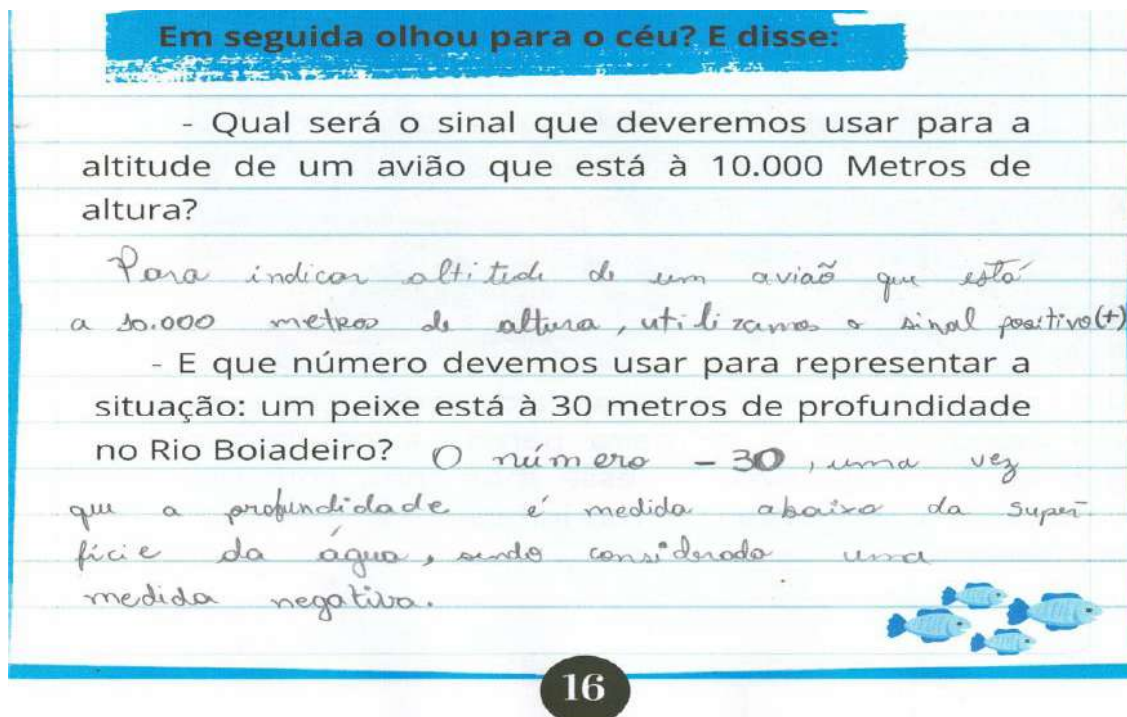 Em seguida olhou para o céu? E disse:
- Qual será o sinal que deveremos usar para a
altitude de um avião que está à 10.000 Metros de
altura?
Para indicar altitude de um avião que está
a 10.000 metros de altura, utilizamos o sinal positivo (+)
- E que número devemos usar para representar a
situação: um peixe está à 30 metros de profundidade
no Rio Boiadeiro? O número - 30, uma vez
que a profundidade é medida abaixo da super-
fície da água, sendo considerado uma
medida negativa.
16